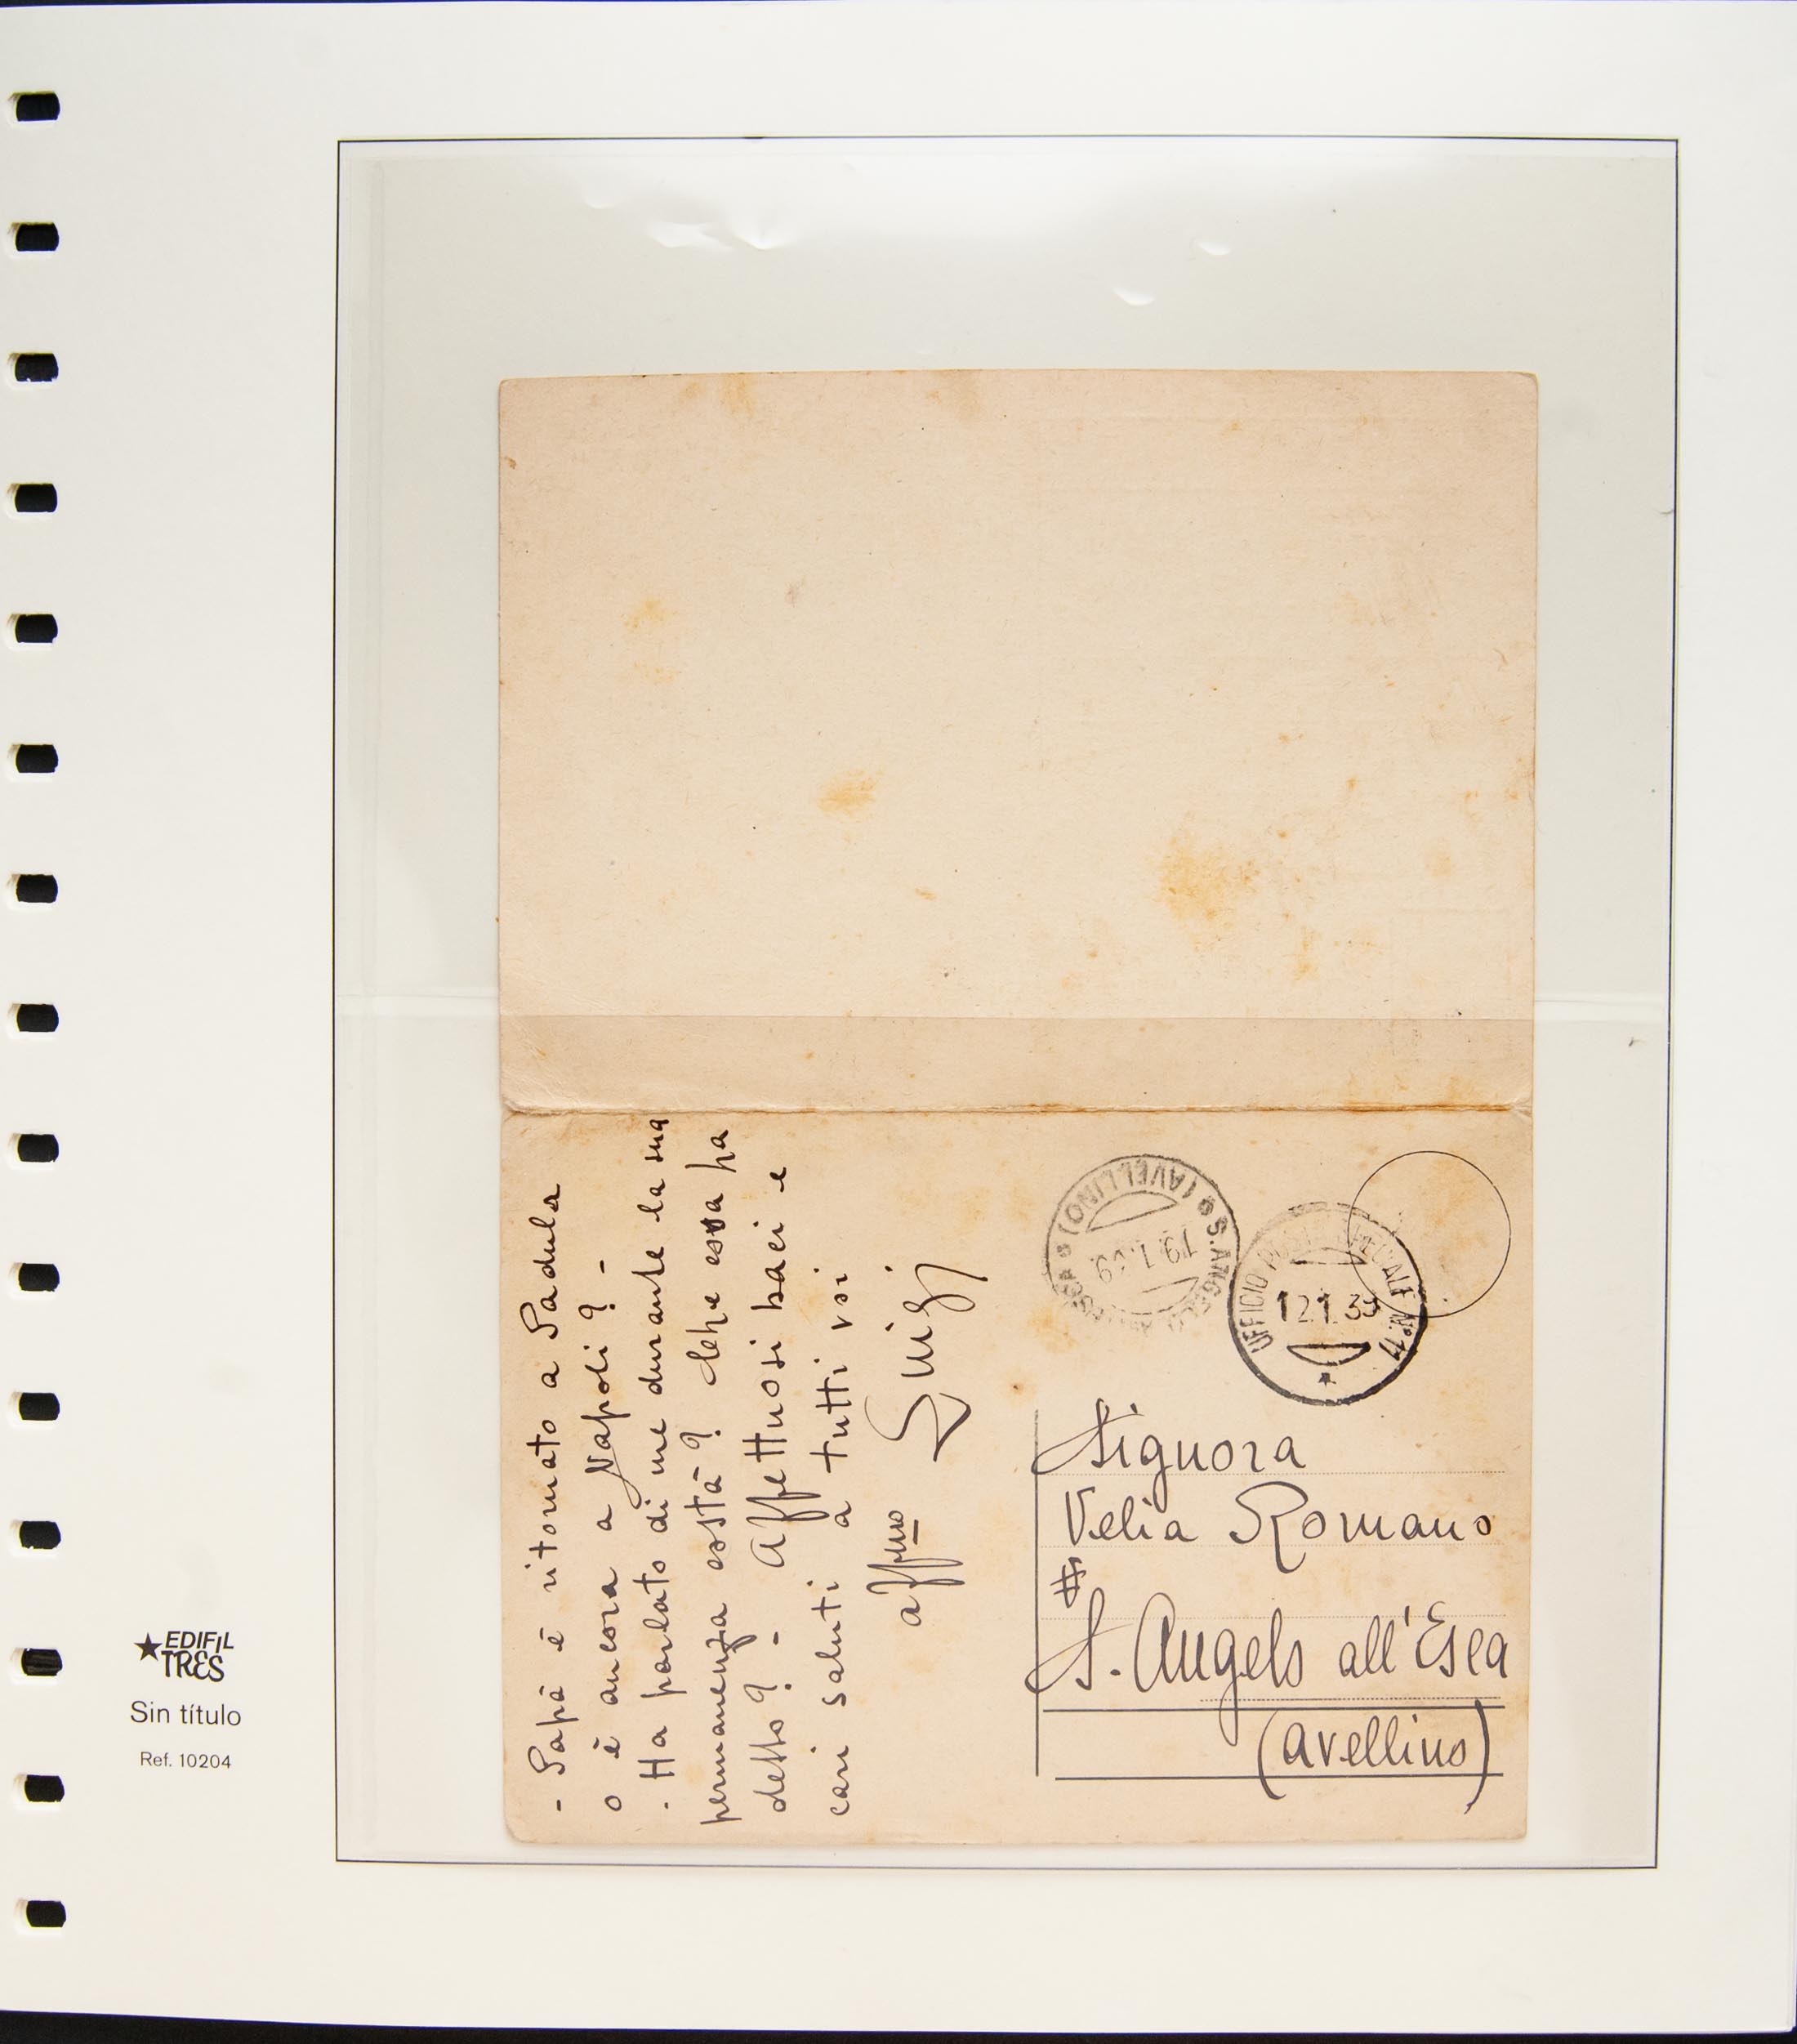 - Papà è ritornato a Padula
o è ancora a Napoli? -
- Ha parlato di me durante la sua
permanenza costà? Che cosa ha
detto? - Affettuosi baci e
cari saluti a tutti voi
aff.mo Luigi
(AVELLINO)
S. ANGELO
19.1.39
UFFICIO POSTALE SPECIALE N. 11
12.1.39
Signora
Velia Romano
#
S. Angelo all'Esca
(Avellino)
EDIFIL
TRES
Sin título
Ref. 10204